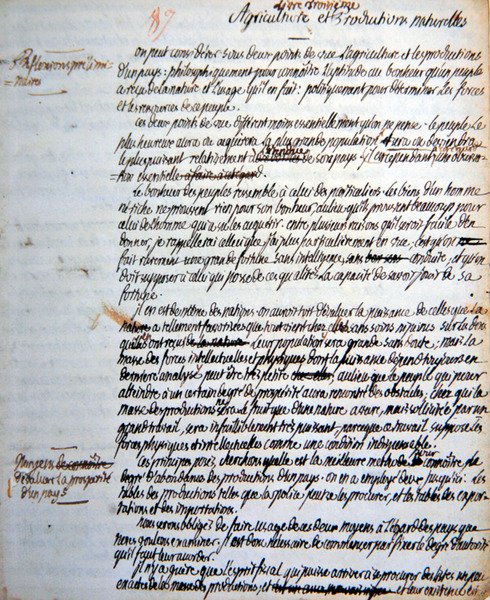 87
Livre troisième
Agriculture et Productions naturelles
Réflexions prélimi-
naires
on peut considérer sous deux points de vue l'agriculture et les productions
d'un pays: philosophiquement pour connoître l'aptitude au bonheur qu'un peuple
a reçu de la nature et l'usage qu'il en fait: politiquement pour déterminer les forces
et les ressources de ce peuple.
ces deux points de vue different moins essentiellement qu'on ne pense: le peuple le
plus heureux aura ou acquerra la plus grande population et sera ou deviendra
le plus puissant relativement à de son pays il y a cependant une observa-
tion essentielle à faire
Le bonheur des peuples ressemble à celui des particuliers les biens d'un homme
né riche ne prouvent rien pour son bonheur, au lieu qu'ils prouvent beaucoup pour
celui de l'homme qui a su les acquerir. entre plusieurs raisons qu'il seroit facile d'en
donner, je rappellerai celle que j'ai plus particulièrement en vue, c'est qu'on
fait rarement une grande fortune sans intelligence, sans bon sens conduite, et qu'on
doit supposer à celui qui possede ces qualités la capacité de savoir jouir de sa
fortune.
il en est de même des nations on auroit tort d'évaluer la puissance de celles que la
nature a tellement favorisées que tout vient chez elles sans soins ni peines sur les biens
qu'elles ont reçus de la nature leur population sera grande sans doute; mais la
masse des forces intellectuelles et physiques dont la puissance dépend toujours en
derniere analyse peut être très petite au lieu que le peuple qui pour
atteindre à un certain degré de prospérité aura rencontré des obstacles, chez qui la
masse des productions sera le fruit que d'une nature assur, mais sollicitée par un
grand travail, sera infailliblement très puissant, parceque ce travail suppose les
forces physiques et intellectuelles comme une condition indispensable.
Moyens de connoître
d'évaluer la prospérité
d'un pays
Ces principes posés, cherchons quelle est la meilleure methode pour connoître le
degré d'abondance des productions d'un pays. on en a employé deux jusqu'ici: les
tables des productions telles que la police peut se les procurer, et les tables des expor-
tations et des importations.
nous serons obligés de faire usage de ces deux moyens à l'égard des pays que
nous voulons examiner. il est donc nécessaire de commencer par fixer le degré d'autorité
qu'il faut leur accorder.
il n'y a guère que l'esprit fiscal qui puisse arriver à se procurer des listes un peu
exactes de la masse des productions, et et leur existence est